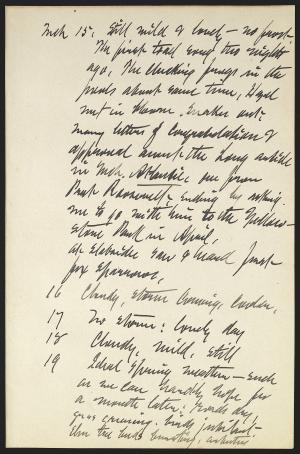 Mch 15, Still mild & lovely - no frost
The first toad song two nights
ago, The clucking frogs in the
pools about same time, Hyla
out in Snakes out.
many letters of congratulation &
approval anent the Long article
in Mch. Atlantic, one from
Prest Roosevelt - ending by asking
me to go with him to the Yellow-
stone Park in April,
at Slabsides saw & heard first
fox sparrows,
16 Cloudy, storm coming, cooler,
17 No storm: lovely day
18 Cloudy, mild, still
19 Ideal spring weather - such
as we can hardly hope for
a month later: roads dry
grass greening, birds jubilant -
elm tree buds bursting, arbutus